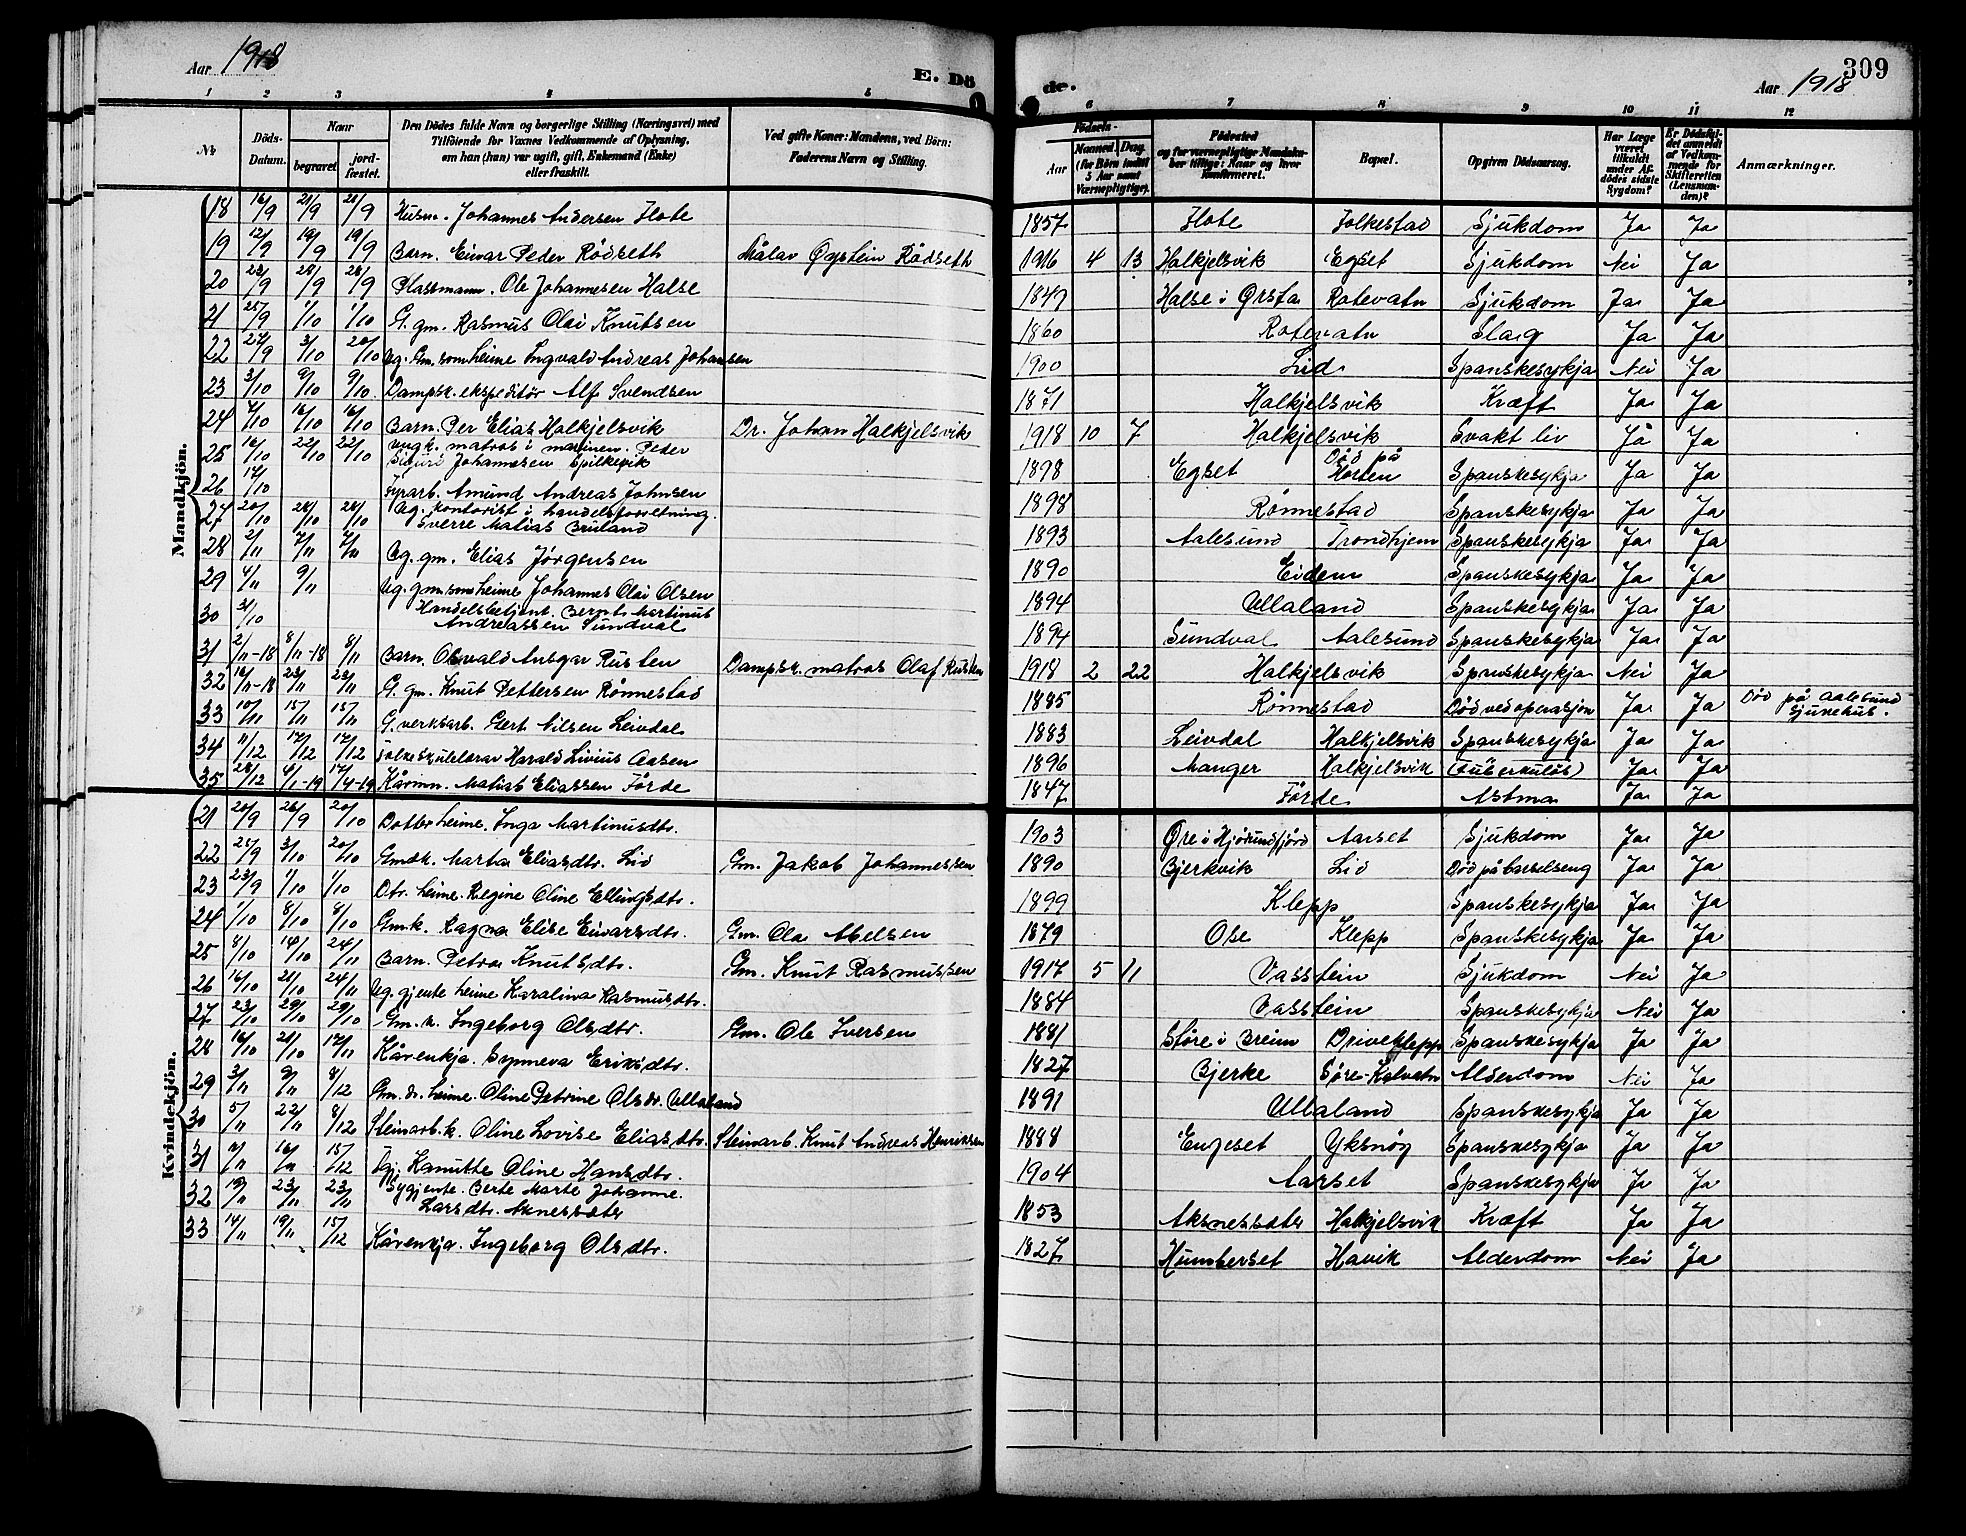 Aar 1918
E. Dö
de.
Aar 1918
309
1 2 3 4 5
6 7 8 9 10 11 12
№
Döds-Datum.
Naar
begravet
jordfæstet.
Den Dödes fulde Navn og borgerlige Stilling (Næringsvei) med Tilföiende for Vaxnes Vedkommende af Oplysning, om han (hun) var ugift, gift, Enkemand (Enke) eller fraskilt.
Ved gifte Koner: Mandens, ved Börn: Faderens Navn og Stilling.
Födsels-
Aar
Maaned. (for Börn indtil 5 Aar samt Værnepligtige).
Dag.
Födested og for værnepligtige Mandskaber tillige: Naar og hvor konfirmeret.
Bopæl.
Opgiven Dödsaarsag.
Har Læge været tilkaldt under Afdödes sidste Sygdom?
Er Dödsfaldet anmeldt af Vedkommende for Skifteretten (Lensmanden)?
Anmærkninger.
Mandkjön.
18 16/9 21/9 21/9 Husm. Johannes Andersen Flote 1857 Flote Folkestad Sjukdom Ja Ja
19 12/9 19/9 19/9 Barn. Eivar Peder Rødseth Målar Øystein Rødseth 1916 4 13 Halkjelsvik Egset Sjukdom Nei Ja
20 23/9 28/9 28/9 Plassmann. Ole Johannesen Halse 1849 Halse i Ørsta Rotevatn Sjukdom Ja Ja
21 25/9 1/10 1/10 G. gm. Rasmus Olai Knutsen 1860 Rotevatn Slag Ja Ja
22 27/9 3/10 20/10 Ug. Gm. son heime Ingvald Andreas Johansen 1900 Lid Spanskesykja Nei Ja
23 3/10 9/10 9/10 Dampsk. ekspeditör Alf Svendsen 1871 Halkjelsvik Kræft Ja Ja
24 7/10 16/10 16/10 Barn. Per Elias Halkjelsvik Dr. Johan Halkjelsvik 1918 10 7 Halkjelsvik Svakt liv Ja Ja
25 16/10 22/10 22/10 ungk. matros i marinen. Peder Sigurd Johannesen Spilkevik 1898 Egset Död på Horten Spanskesykja Ja Ja
26 14/10 Fyrarb. Amund Andreas Johnsen 1898 Rønnestad Spanskesykja Ja Ja
27 20/10 28/10 28/10 Ug. kontorist i handelsforretning. Sverre Matias Bruland 1893 Aalesund Trondhjem Spanskesykja Ja Ja
28 2/11 7/11 7/11 Ug. gm. Elias Jørgensen 1890 Eidem Spanskesykja Ja Ja
29 4/11 9/11 Ug. gm. son heime Johannes Olai Olsen 1894 Ullaland Spanskesykja Ja Ja
30 31/10 Handelsbetjent. Bernt Martinus Andreassen Sundval 1894 Sundval Aalesund Spanskesykja Ja Ja
31 2/11-18 8/11-18 8/11 Barn. Osvald Ansgar Rusten Dampsk. matros Olaf Rusten 1918 2 22 Halkjelsvik Spanskesykja Nei Ja
32 16/11-18 23/11 23/11 G. gm. Knut Pettersen Rønnestad 1885 Rønnestad Död ved operasjon Ja Ja Död på Aalesund sjukehus.
33 10/11 15/11 15/11 G. verksarb. Gert Nilsen Leivdal 1883 Leivdal Halkjelsvik Spanskesykja Ja Ja
34 11/12 17/12 17/12 Folkeskulelærar Harald Livius Aasen 1896 Manger Halkjelsvik (Tuberkulös) Ja Ja
35 28/12 4/1-19 17/4-19 Kårmn. Matias Eliassen Förde 1847 Förde Astma Ja Ja
Kvindekjön.
21 20/9 26/9 20/10 Dotter heime. Inga Martinusdtr. 1903 Øre i Hjörundfjörd Aarset Sjukdom Ja Ja
22 25/9 3/10 20/10 Gmdk. Marta Eliasdtr. Lid Gm. Jakob Johannessen 1890 Bjerkvik Lid Död på barselseng Ja Ja
23 23/9 1/10 1/10 Dtr. heime. Regine Oline Ellingsdtr. 1899 Klepp Spanskesykja Ja Ja
24 1/10 8/10 8/10 Gmk. Ragna Elise Eivarsdtr. Gm. Ola Abelsen 1879 Ose Klepp Spanskesykja Ja Ja
25 8/10 14/10 24/11 Barn. Petra Knutsdtr. Gm. Knut Rasmussen 1917 5 11 Vasstein Sjukdom Nei Ja
26 16/10 21/10 24/11 Ug. gjente heime Karalina Rasmusdtr. 1884 Vasstein Spanskesykja Nei Ja
27 23/10 29/10 29/10 Gm. k. Ingeborg Olsdtr. Gm. Ole Iversen 1881 Störe i Breim Driveklepp Spanskesykja Ja Ja
28 16/10 21/10 17/11 Kårenkja. Synneva Eriksdtr. 1827 Bjerke Søre-Kalvatn Alderdom Nei Ja
29 3/11 9/11 8/12 Gm. dr. heime. Oline Petrine Olsdr. Ullaland 1891 Ullaland Spanskesykja Ja Ja
30 5/11 22/11 8/12 Steinarb. k. Oline Lovise Eliasdtr. Steinarb. Knut Andreas Henriksen 1888 Engeset Yksnøy Spanskesykja Ja Ja
31 11/11 16/11 15/12 Ugj. Kanutte Oline Hansdtr. 1904 Aarset Spanskesykja Ja Ja
32 19/11 23/11 23/11 Sygjente. Berte Marte Johanne Larsdtr. Aknessæter 1853 Aksnessæter Halkjelsvik Kræft Ja Ja
33 14/11 19/11 15/12 Kårenkja. Ingeborg Olsdtr. 1827 Humberset Havik Alderdom Nei Ja